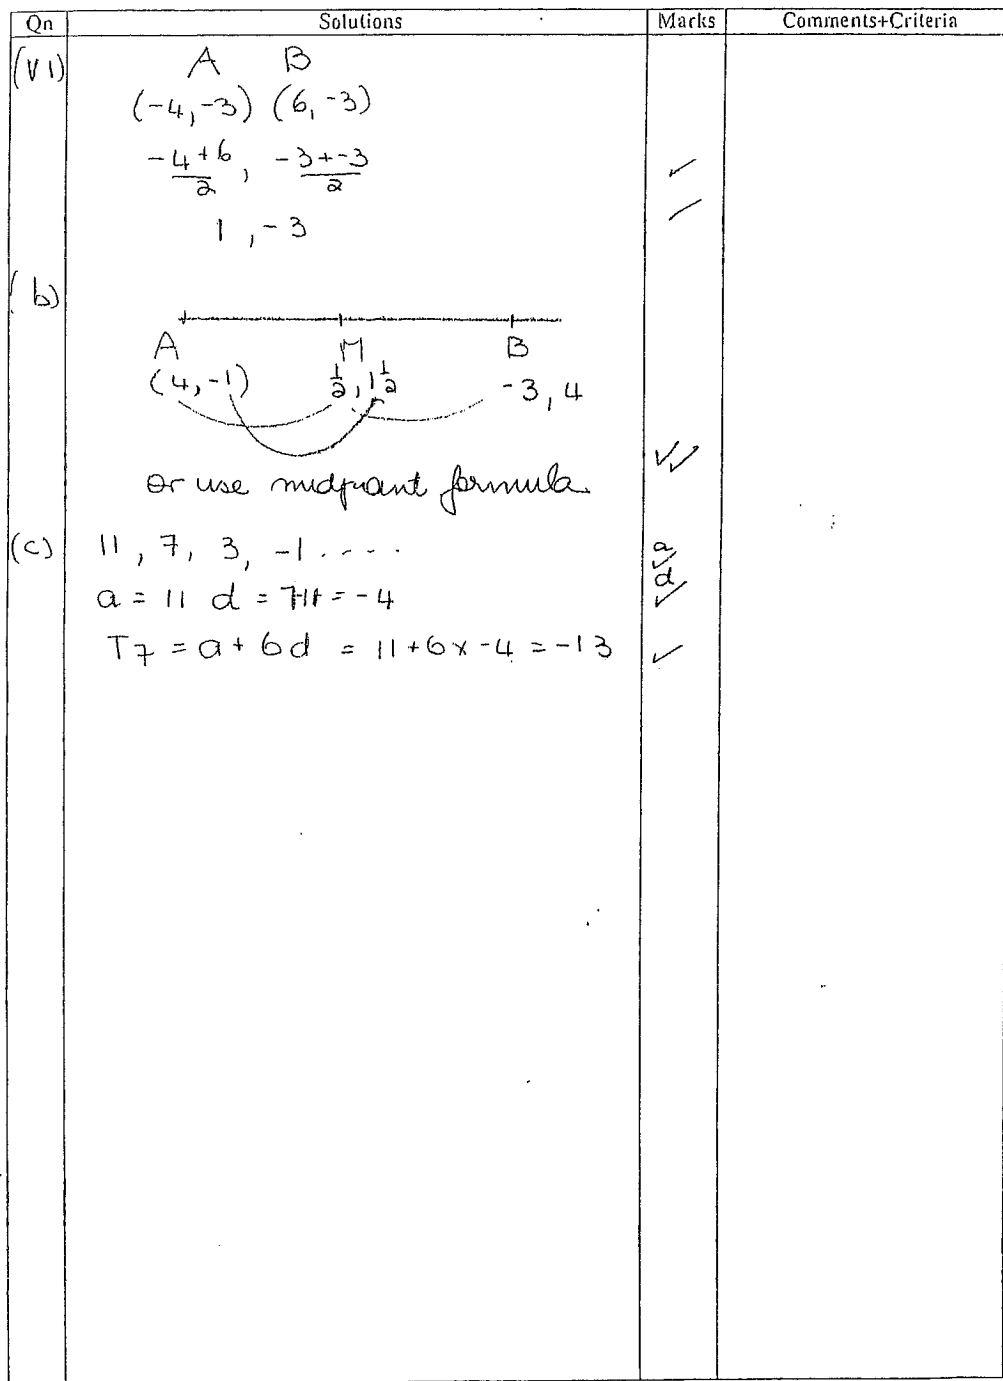 Qn Solutions Marks Comments+Criteria
(VI) A B
(-4, -3) (6, -3)
-4+6/2, -3+-3/2 ✓
1, -3 ✓
(b)
A M B
(4, -1) 1/2, 1 1/2 -3, 4
✓✓
or use midpoint formula
(c) 11, 7, 3, -1 ..... a ✓
a = 11 d = 7-11 = -4 d ✓
T7 = a + 6d = 11 + 6 x -4 = -13 ✓